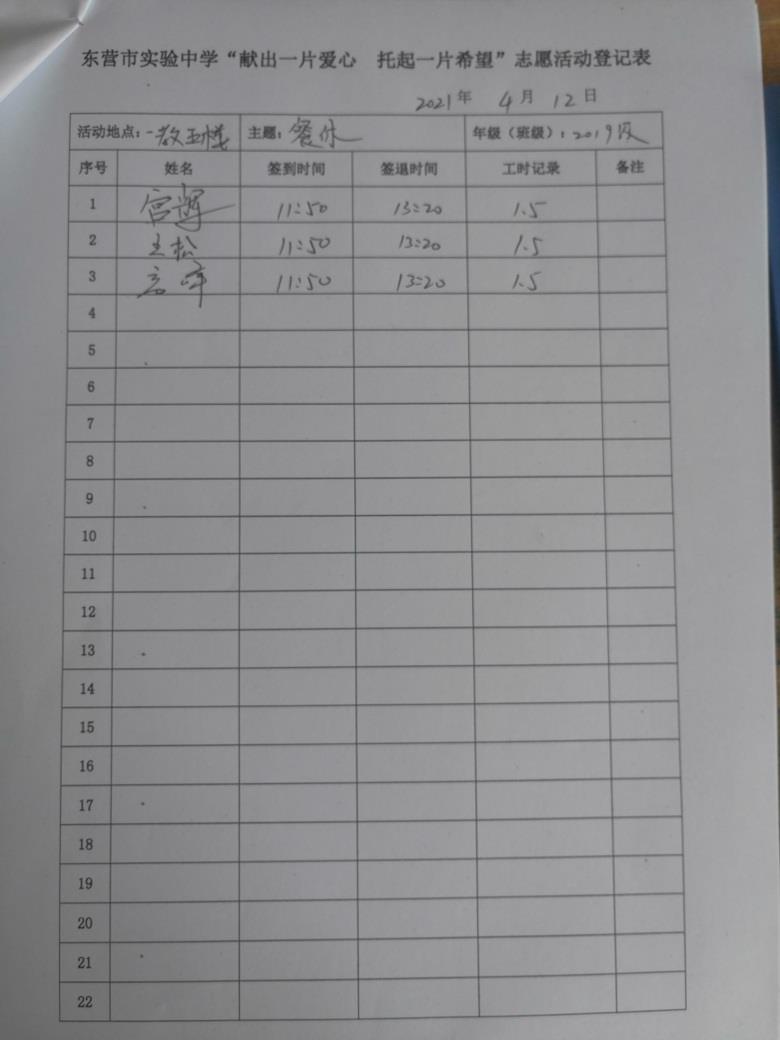 东营市实验中学“献出一片爱心 托起一片希望”志愿活动登记表
2021年 4月 12日
活动地点: 主题: 餐休 年级（班级）: 2019级
序号 姓名 签到时间 签退时间 工时记录 备注
1 11:50 13:20 1.5
2 王松 11:50 13:20 1.5
3 11:50 13:20 1.5
4
5
6
7
8
9
10
11
12
13
14
15
16
17
18
19
20
21
22